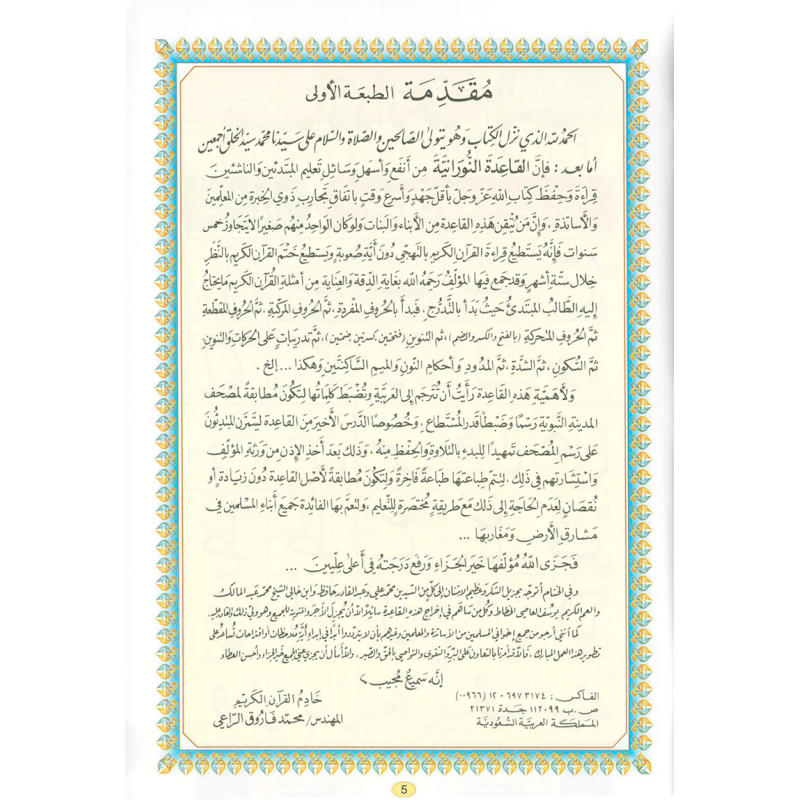 مُقَدِّمَة الطبعَة الأولى
الحمد لله الذي نزّل الكِتَاب وَهُوَ يتولى الصالحين وَالصّلاة وَالسّلام على سَيّدنا محمّد سيّد الخلق أجمعين
أما بعد : فإنَّ القَاعِدَة النُّورَانيَّة مِن أنفَع وَأسهَل وَسَائل تعليم المبتدئين وَالناشئين
قراءَة وَحِفظ كتاب الله عَزّ وَجَلّ بأقلّ جَهْد وَأسرَع وقتٍ باتفاق تجارب ذَوي الخِبرة مِن المعلّمين
وَالأسَاتذة ، وَإنَّ مَن يُتقِن هَذِهِ القاعدة مِن الأبناء وَالبنات وَلَو كان الواحِد مِنهُم صَغيرًا لا يَتجاوز خمس
سَنوات فَإنَّهُ يَستطيع قِراءَة القرآن الكريم بالتهجّي دُونَ أيَّة صُعوبةٍ وَيَستطيع خَتْم القرآن الكريم بالنَّظَر
خِلال سِتَّة أشهر وَقد جمَع فيها المؤلّف رَحِمَهُ الله بغاية الدِّقة وَالعِناية مِن أمثلة القُرآن الكريم مَا يحتاجُ
إليه الطَّالبُ المبتدئُ حَيثُ بَدَأ بالتَّدرُّج ، فبدأ بالحُروف المفرَدة ، ثمَّ الحُروف المركّبة ، ثمَّ الحُروف المقطّعة
ثمَّ الحُروف المتحركة (بالفتح والكسر والضم) ، ثم التنوين (فتحتين،كسرتين،ضمتين) ، ثمَّ تدريبات على الحركات وَالتنوين،
ثمَّ السُّكون ، ثمَّ الشَّدّة ، ثمَّ المدُود وَأحكام النّون وَالميم السَّاكِنَتَين وَهكذا ... إلخ .
وَلأهَمِّيَّة هَذِهِ القَاعِدة رَأيتُ أن تُترجَم إلى العَربيَّة وَتُضبَط كَلِماتُها لِتكُون مُطابقةً لمصْحَف
المدينةِ النّبويّة رَسْمًا وَضَبطًا قَدرَ المُسْتَطاع ، وَخُصوصًا الدّرسَ الأخيرَ مِنَ القَاعِدة ليَتمَرّن المبتدِئُونَ
عَلى رَسْم المُصْحَف تمهيدًا للبدءِ بالتّلاوَةِ وَالحِفظ مِنهُ ، وَذَلكَ بَعدَ أخذِ الإذنِ مِن وَرَثةِ المؤلّف
وَاستِشارَتِهم في ذَلك ، ليَتمّ طِباعَتُها طِباعَةً فَاخِرَةً وَلِتكُونَ مُطَابقةً لأصْل القَاعِدة دُونَ زيَادَةٍ أو
نُقصَان لعَدم الحَاجَة إلى ذَلكَ مَع طريقةٍ مُختصَرَة للتّعليم ، وَلتعُمَّ بها الفائدَةُ جَميعَ أبناءِ المسلمين في
مَشارقِ الأرضِ وَمَغَاربها ...
فَجَزَى اللهُ مُؤلّفَها خَيرَ الجَزاء وَرَفعَ دَرَجتَهُ في أعلى عِلّيين ...
وفي الختام أتوجّه بجزيل الشكر وعظيم الامتنان إلى كلّ من السيدين محمد علي وعبد القادر حافظ، وابن خالي الشيخ محمد عبد المالك
والعم الكريم يوسف العاصي الخطاط وكلّ من ساهم في إخراج هذه القاعدة سائلاً الله أن يُجزل الأجر والمثوبة للجميع وهو وليّ ذلك والقادر عليه.
كما أنني أرجو من جميع إخواني المسلمين من الأساتذة والمعلمين وغيرهم بأن لا يترددوا أبداً في إبداء أيّة ملاحظات أو اقتراحات تُساعد على
تطوير هذا العمل المبارك ، فالله أمرنا بالتعاون على البرّ والتقوى والتواصي بالحق والصبر ، والله أسأل أن يجزي عني الجميع خير الجزاء وأحسن العطاء
إنّه سَميعٌ مُجيب
الفاكس : ٦٩٧٣١٧٤ - ١٢ (٠٠٩٦٦)
ص . ب ١١٢٠٩٩ جـدة ٢١٣٧١
المملكة العربية السعودية
خَادِمُ القرآن الكَريم
المهندس/ محمّد فَاروق الرّاعي
5